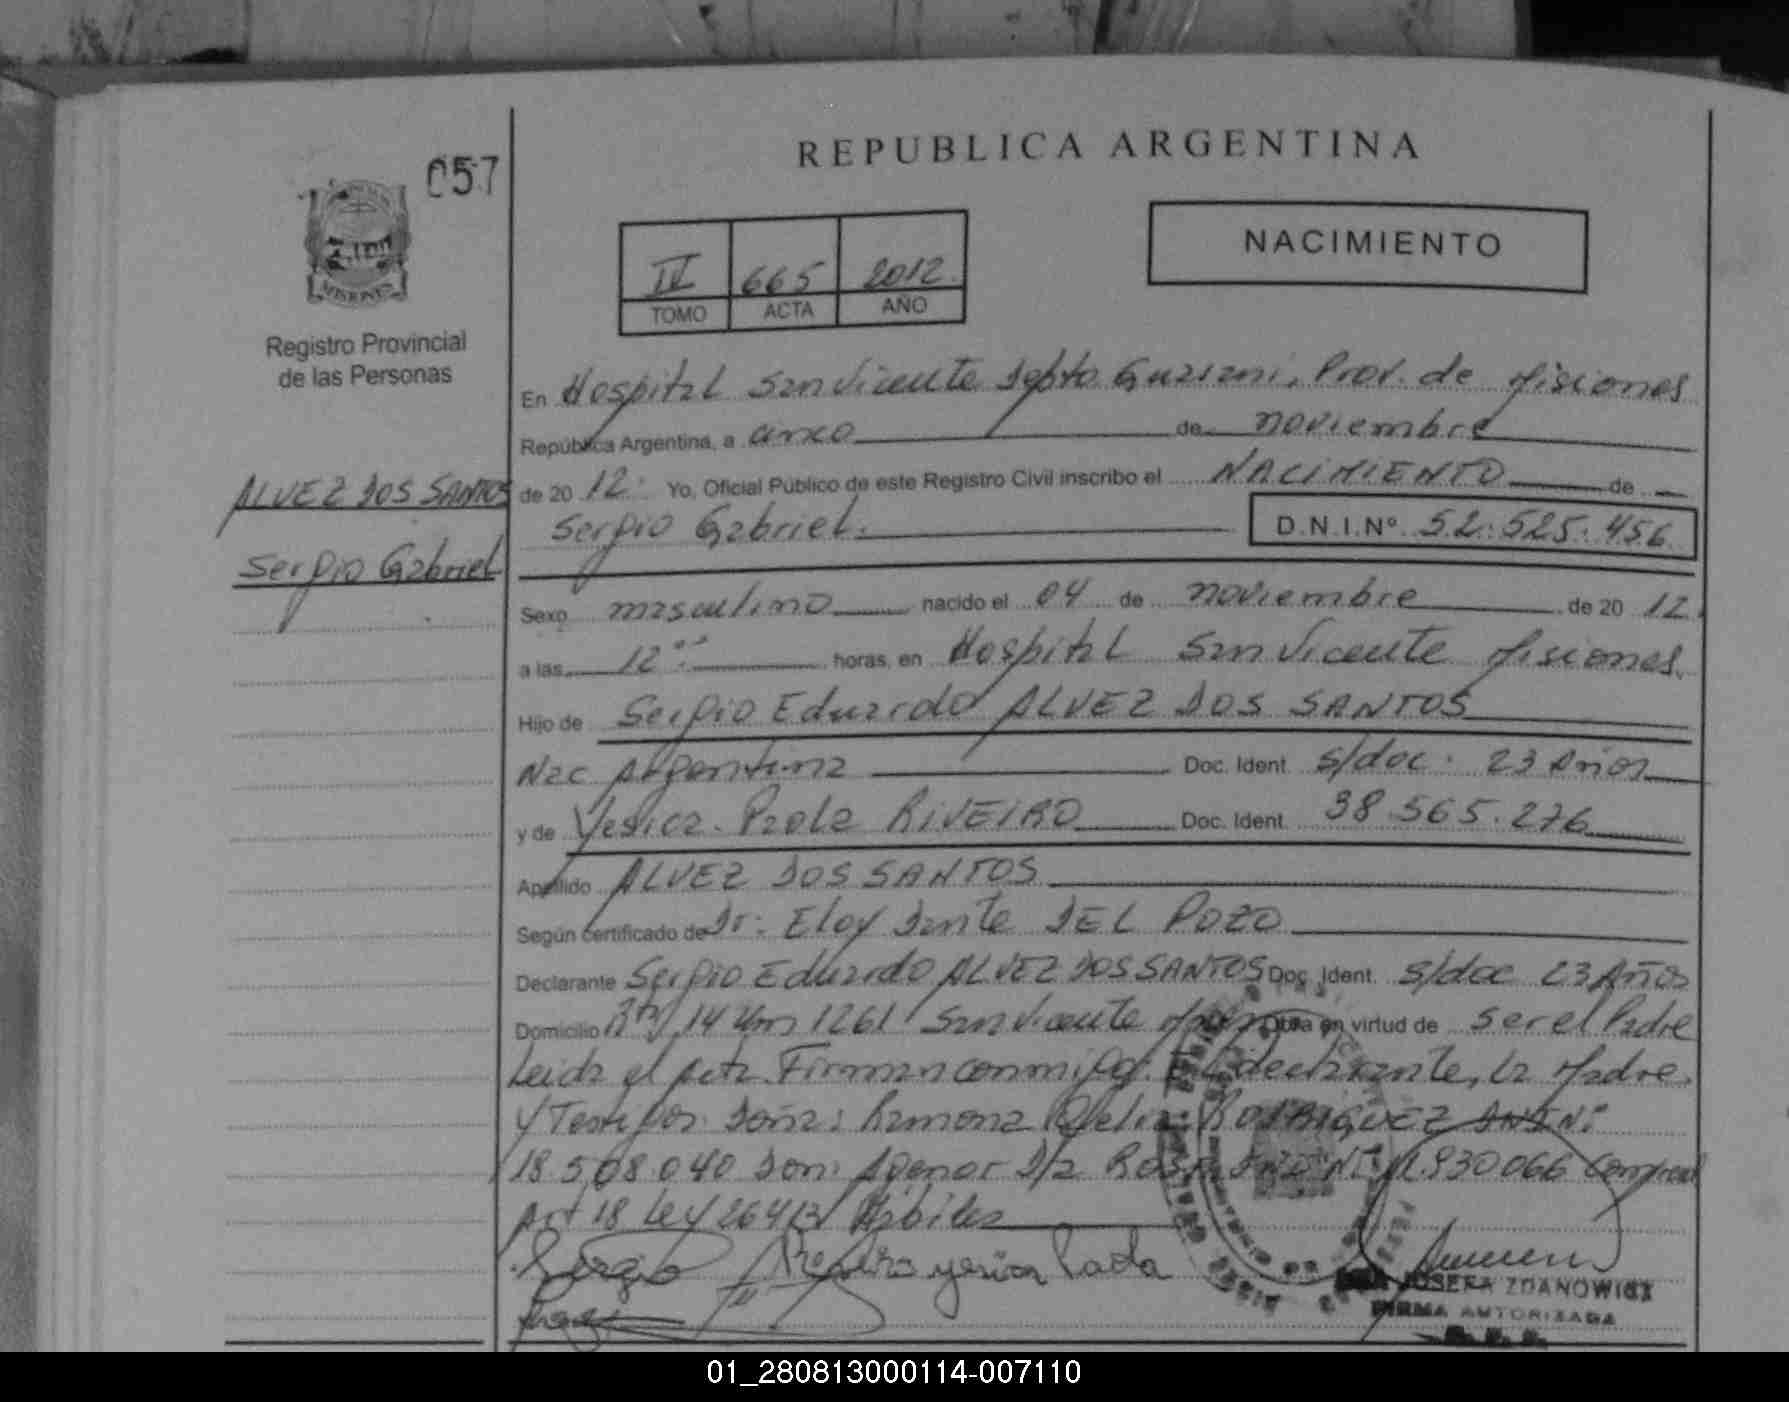 057
MISIONES
Registro Provincial
de las Personas
ALVEZ DOS SANTOS
Sergio Gabriel
REPUBLICA ARGENTINA
NACIMIENTO
IV 665 2012.
TOMO ACTA AÑO
En Hospital San Vicente Depto Guarani, Prov. de Misiones
República Argentina, a cinco de noviembre
de 20 12. Yo, Oficial Público de este Registro Civil inscribo el NACIMIENTO de
Sergio Gabriel. D.N.I.Nº 52.525.456
Sexo masculino nacido el 04 de noviembre de 20 12
a las 12 horas, en Hospital San Vicente Misiones.
Hijo de Sergio Eduardo ALVEZ DOS SANTOS
Nac Argentina Doc. Ident. s/doc. 23 Años
y de Yesica Paola RIVEIRO Doc. Ident. 38.565.276
Apellido ALVEZ DOS SANTOS
Según certificado de Dr: Eloy Dante DEL POZO
Declarante Sergio Eduardo ALVEZ DOS SANTOS Doc. Ident. s/doc 23 Años
Domicilio Rta 14 Km 1261 San Vicente Obra en virtud de ser el Padre
Leida el Acta Firman conmigo. El declarante, la Madre.
Y Testigos Doña: Ramona RODRIGUEZ DNI Nº
18.508.040 Don: Agenor Da ROSA DNI Nº
Art 18 Ley 26413 Habiles
Sergio yesica Paola
JOSEFA ZDANOWICZ
FIRMA AUTORIZADA
01_280813000114-007110